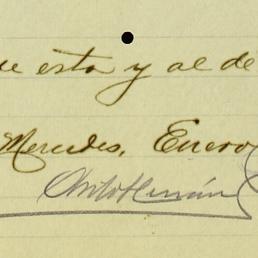 ue esta y al de
Mercedes, Enero